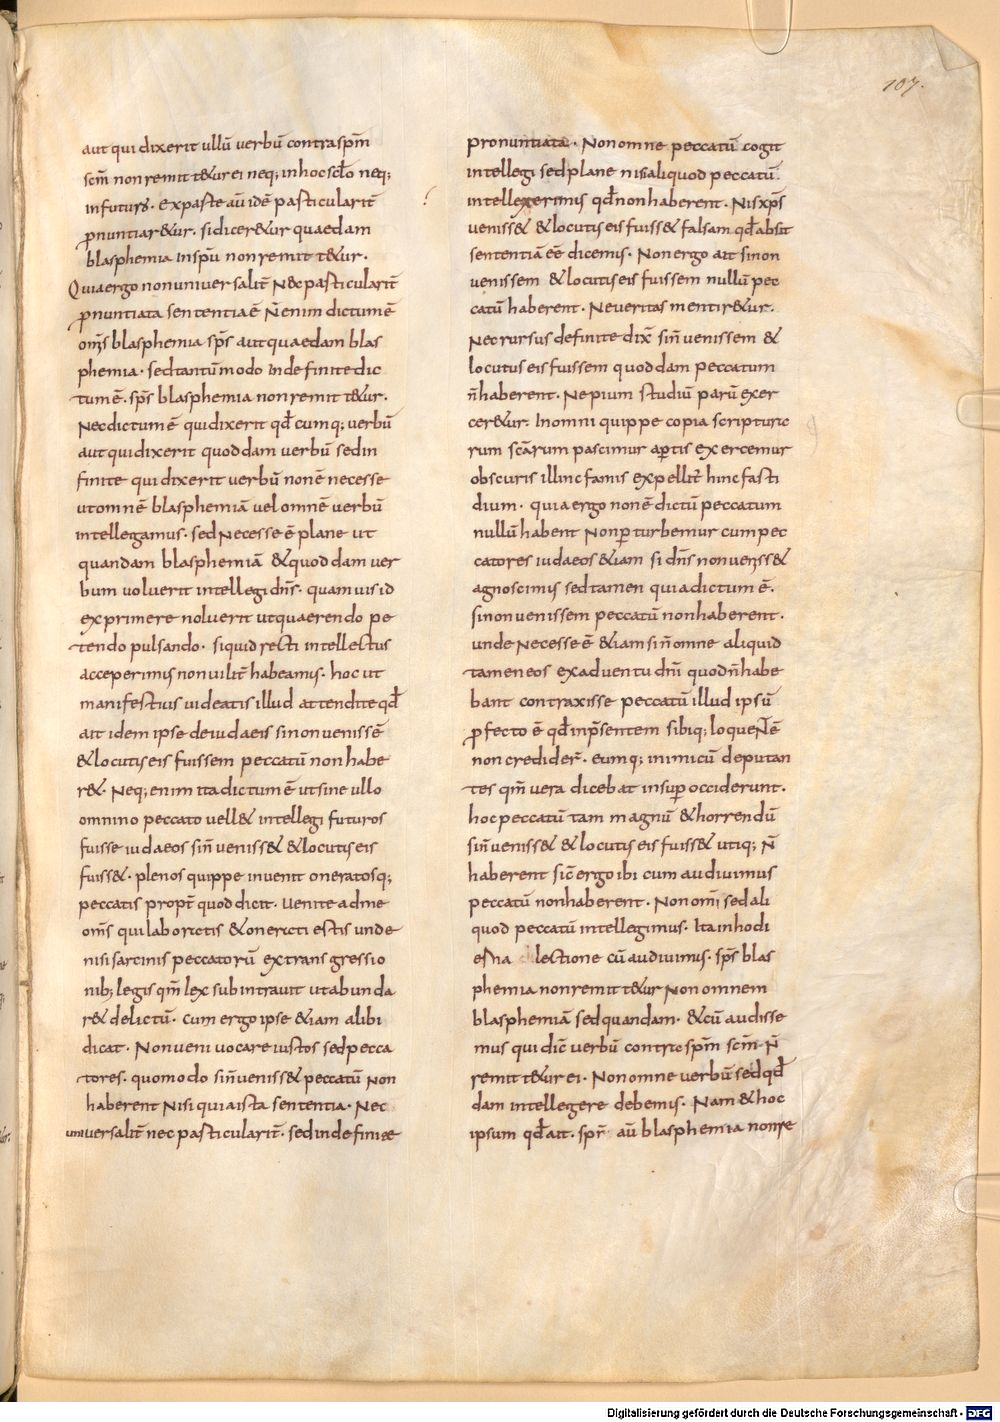 107.
aut qui dixerit ullū verbū contra spm̄
scm̄ non remitt&ur ei neq; in hoc sclo neq;
in futuro. Ex paste aū idē pasticularit̄
ꝓnuntiar&ur. si dicer&ur quaedam
blasphemia in spū non remitt&ur.
Quia ergo non universalit̄ Nec pasticularit̄
ꝓnuntiata sententia ē N̄ enim dictum ē
om̄s blasphemia sps̄ aut quaedam blas
phemia. sed tantūmodo indefinite dic
tum ē. sps̄ blasphemia non remitt&ur.
Nec dictum ē qui dixerit qđcumq; verbū
aut qui dixerit quoddam verbū sed in
finite qui dixerit verbū non ē necesse
ut omnē blasphemiā vel omnē verbū
intellegamus. sed Necesse ē plane ut
quandam blasphemiā & quoddam ver
bum voluerit intellegi dn̄s. quamuis id
exprimere noluerit ut quaerendo pe
tendo pulsando. si quid recti intellectus
acceperimus non vilit̄ habeamus. hoc ut
manifestius videatis illud attendite qđ
ait idem ipse de iudaeis si non venissē
& locutus eis fuissem peccatū non habe
r&. Neq; enim ita dictum ē ut sine ullo
omnino peccato vell& intellegi futuros
fuisse iudaeos si n̄ veniss& & locutus eis
fuiss&. plenos quippe invenit oneratosq;
peccatis propt̄ quod dicit. Venite ad me
om̄s qui laboratis & onerati estis unde
nisi sarcinis peccatorū ex transgressio
nib; legis qm̄ lex subintravit ut abunda
r& delictū. cum ergo ipse &iam alibi
dicat. Non veni vocare iustos sed pecca
tores. quomodo si n̄ veniss& peccatū Non
haberent Nisi quia ista sententia. Nec
universalit̄ nec pasticularit̄. sed indefinite
pronuntiata. Non omne peccatū cogit
intellegi sed plane nisi aliquod peccatū
intellexerimus qđ non haberent. Nisi xps̄
veniss& & locutus eis fuiss& falsam qđ absit
sententiā ēē dicemus. Non ergo ait si non
venissem & locutus eis fuissem nullū pec
catū haberent. Ne veritas mentir&ur.
Nec rursus definite dix̄ si n̄ venissem &
locutus eis fuissem quoddam peccatum
n̄ haberent. Ne pium studiū parū exer
cer&ur. In omni quippe copia scriptura
rum scārum pascimur aꝑtis exercemur
obscuris illinc famis expellit̄ hinc fasti
dium. quia ergo non ē dictū peccatum
nullū habent Non ꝑturbemur cum pec
catores iudaeos &iam si dn̄s non veniss&
agnoscimus sed tamen quia dictum ē.
si non venissem peccatū non haberent.
unde Necesse ē &iam si n̄ omne aliquid
tamen eos ex adventu dn̄i quod n̄ habe
bant contraxisse peccatū illud ipsū
ꝓfecto ē qđ in p̄sentem sibiq; loquentē
non credider̄. eumq; inimicū deputan
tes qm̄ vera dicebat insuꝑ occiderunt.
hoc peccatū tam magnū & horrendū
si n̄ veniss& & locutus eis fuiss& utiq; N̄
haberent sic̄ ergo ibi cum audivimus
peccatū non haberent. Non om̄i sed ali
quod peccatū intellegimus. Ita in hodi
estna lectione cū audivimus. sps̄ blas
phemia non remitt&ur Non omnem
blasphemiā sed quandam. & cū audisse
mus qui dic̄ verbū contra spm̄ scm̄. N̄
remitt&ur ei. Non omne verbū sed qđ
dam intellegere debemus. Nam & hoc
ipsum qđ ait. spr̄ aū blasphemia non re
Digitalisierung gefördert durch die Deutsche Forschungsgemeinschaft - DFG